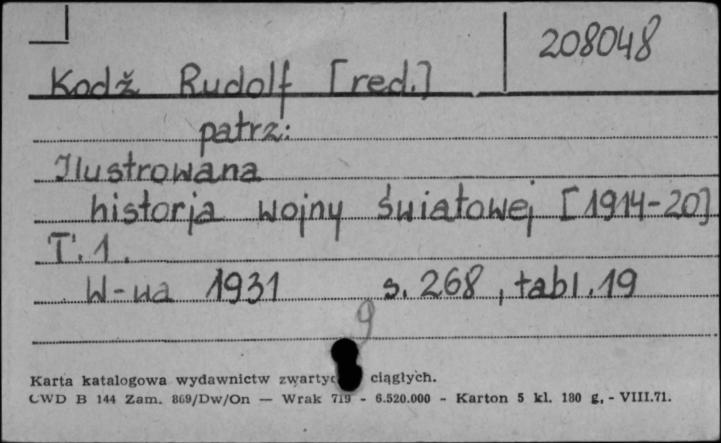 208048
Kodž Rudolf [red.]
patrz:
Ilustrowana
historja wojny światowej [1914-20]
T. 1.
W-wa 1931 s. 268, tabl. 19
9
Karta katalogowa wydawnictw ciągłych.
CWD B 144 Zam. 869/Dw/On — Wrak 719 - 6.520.000 - Karton 5 kl. 180 g, - VIII.71.